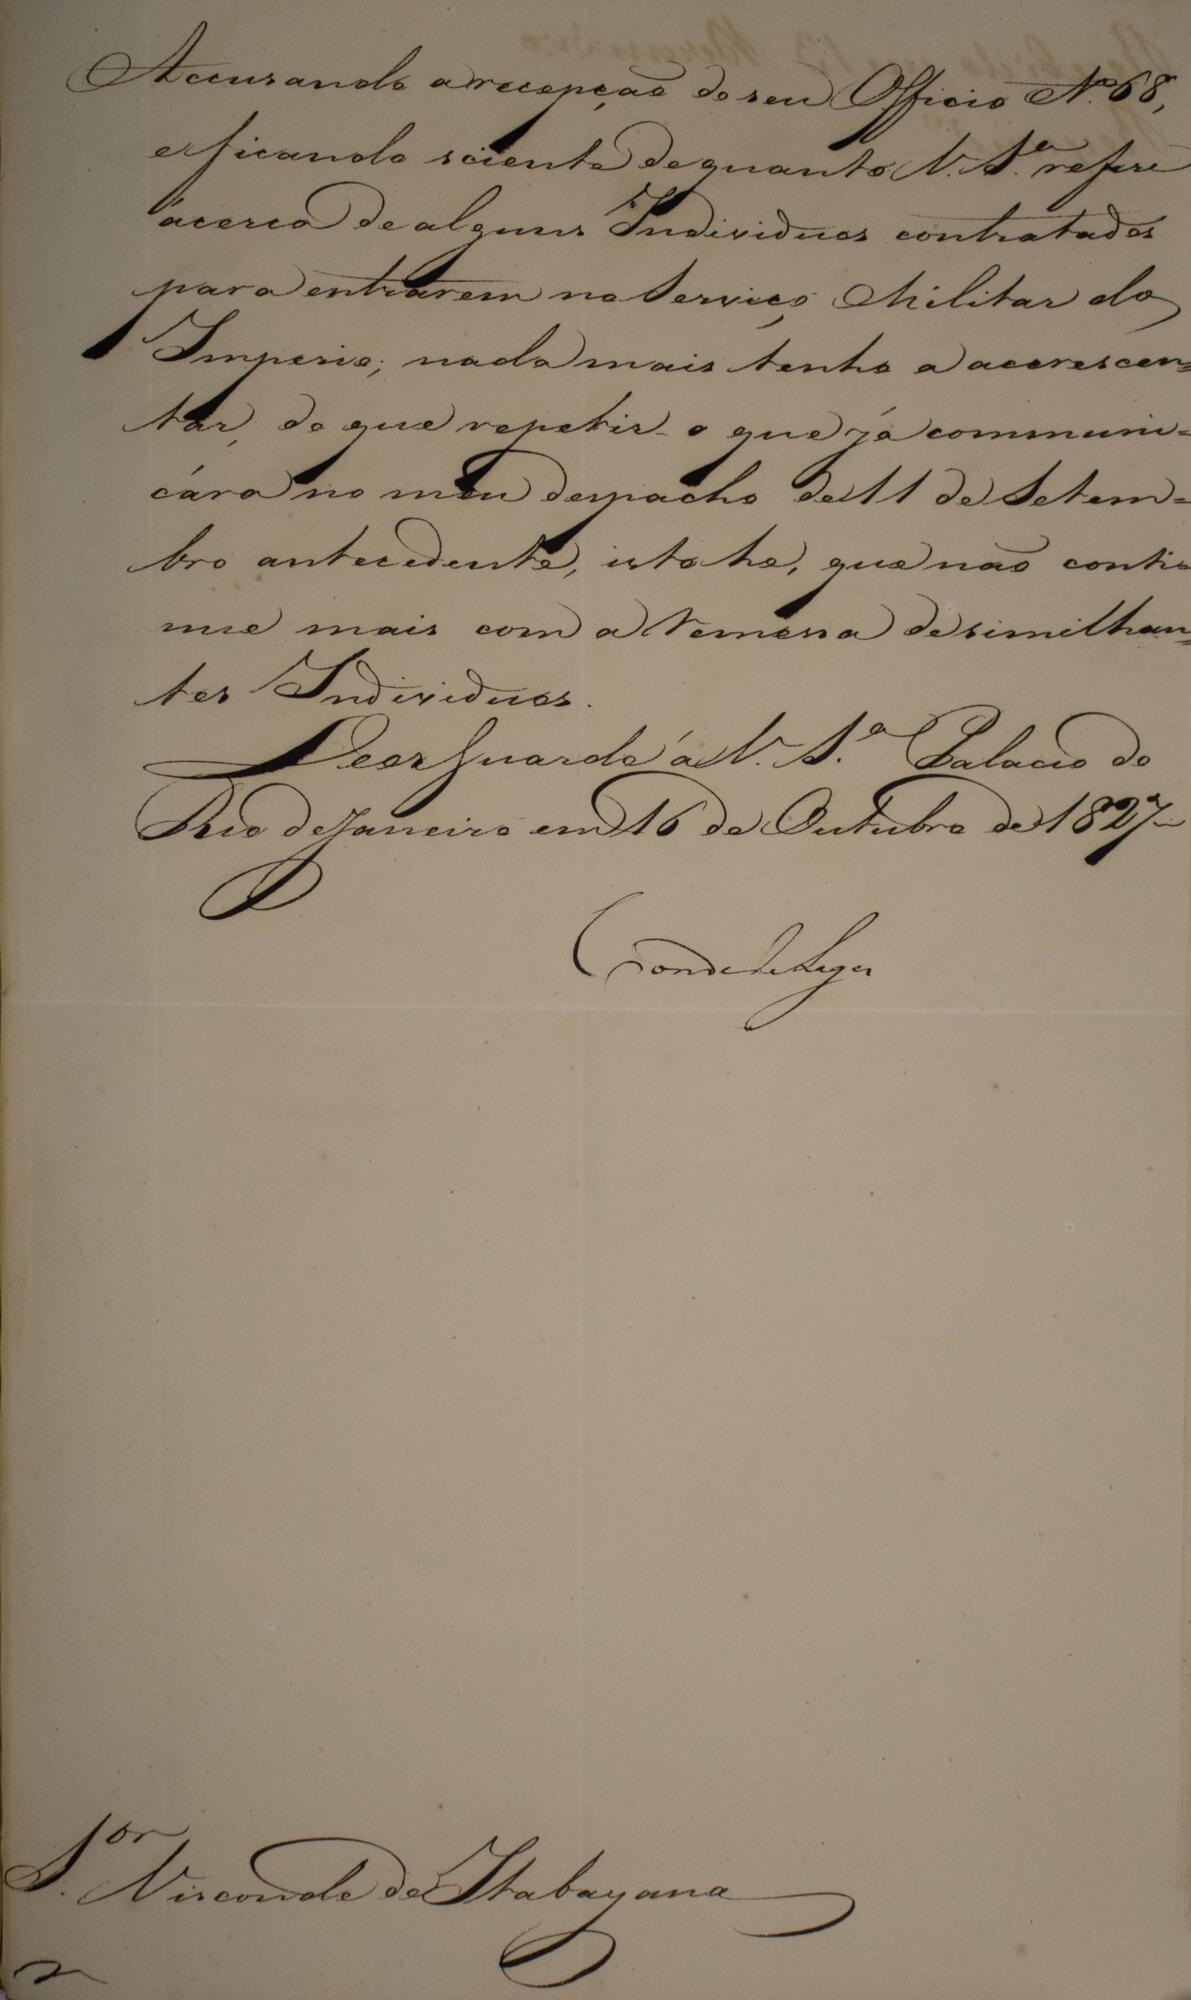 Accusando a recepção do seu Officio N.º 68,
e ficando sciente de quanto V. S.ª refere
ácerca de alguns Individuos contratados
para entrarem no Serviço Militar do
Imperio; nada mais tenho a accrescen=
tar, do que repetir o que já communi=
cára no meu despacho de 11 de Setem=
bro antecedente, isto he, que não conti=
nue mais com a remessa de similhan=
tes Individuos.
Deos Guarde á V. S.ª Palacio do
Rio de Janeiro em 16 de Outubro de 1827
Conde de Lages
S.or Visconde de Itabayana